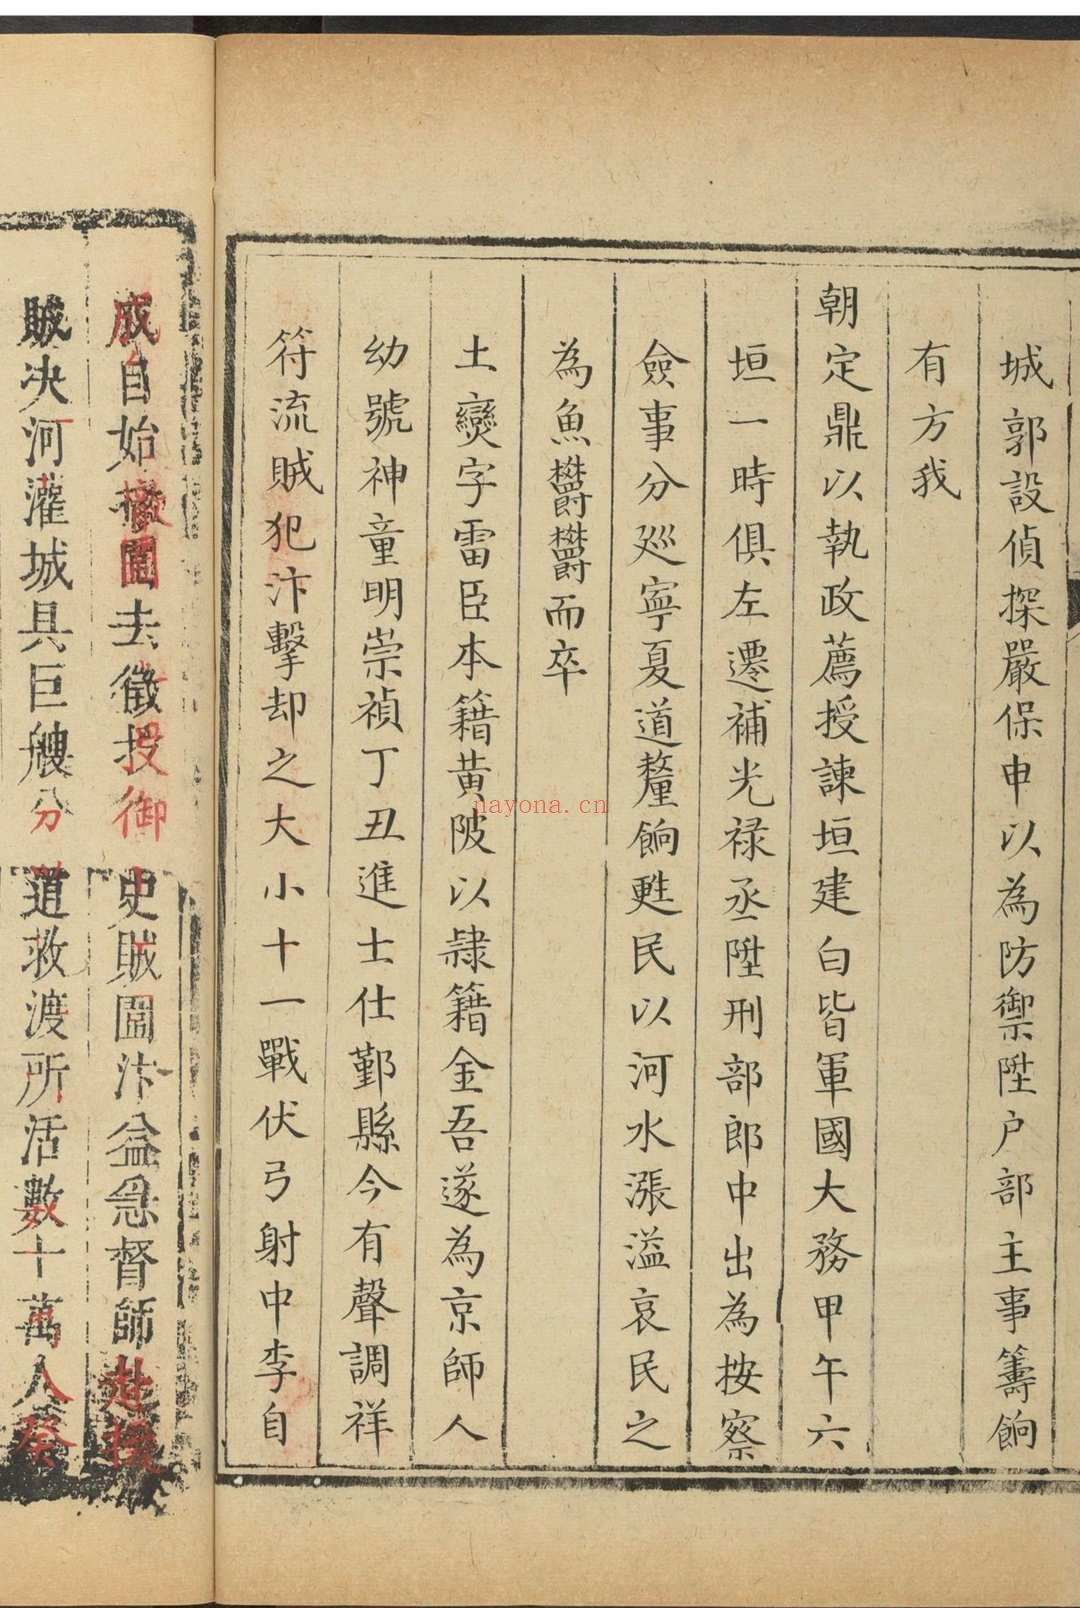 城郭設偵探嚴保申以為防禦陞户部主事籌餉
有方我
朝定鼎以執政薦授諫垣建白皆軍國大務甲午六
垣一時俱左遷補光禄丞陞刑部郎中出為按察
僉事分廵寧夏道釐餉甦民以河水漲溢哀民之
為魚欝欝而卒
土燮字雷臣本籍黄陂以隷籍金吾遂為京師人
幼號神童明崇禎丁丑進士仕鄞縣今有聲調祥
符流賊犯汴擊却之大小十一戰伏弓射中李自
成自始撤圍去徵授御史賊圍汴益急督師赴援
賊决河灌城具巨艘分道救渡所活數十萬人癸
nayona.cn